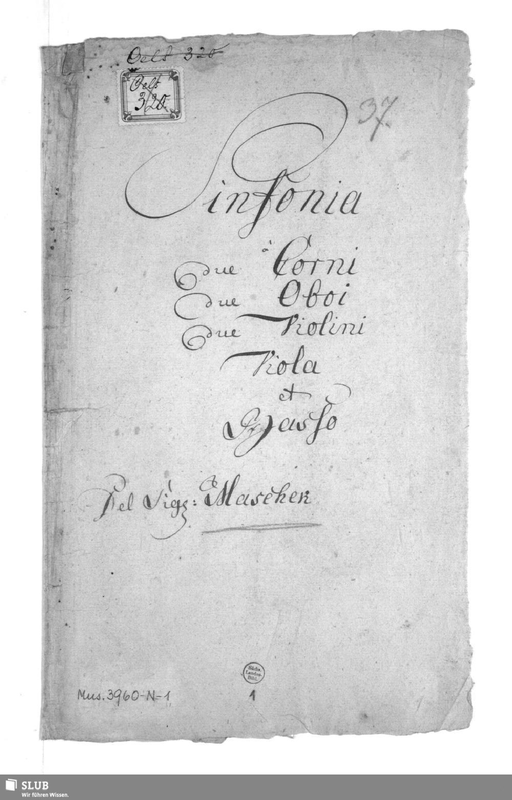 Oels 320
Oels
320.
37.
Sinfonia
à
due Corni
due Oboi
due Violini
Viola
et
Basso
Del Sigr: Maschek
Mus. 3960-N-1
1
SLUB
Wir führen Wissen.